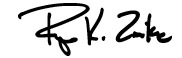 Ryan K. Zinke